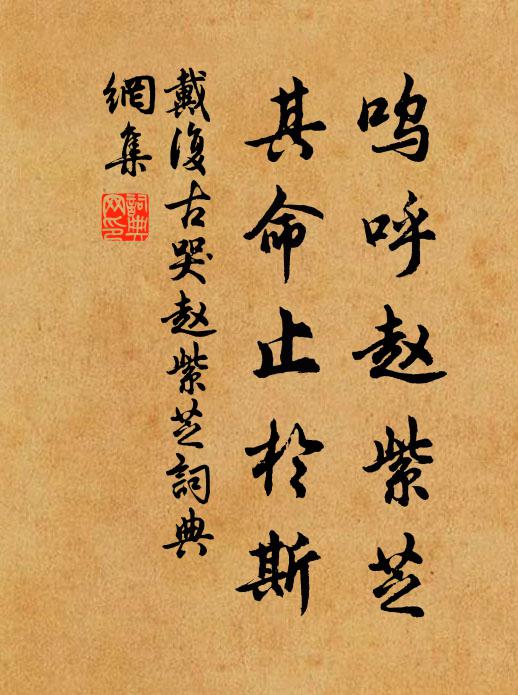 呜呼赵紫芝
其命止於斯
戴復古哭赵紫芝詞典
網集
詞典網印